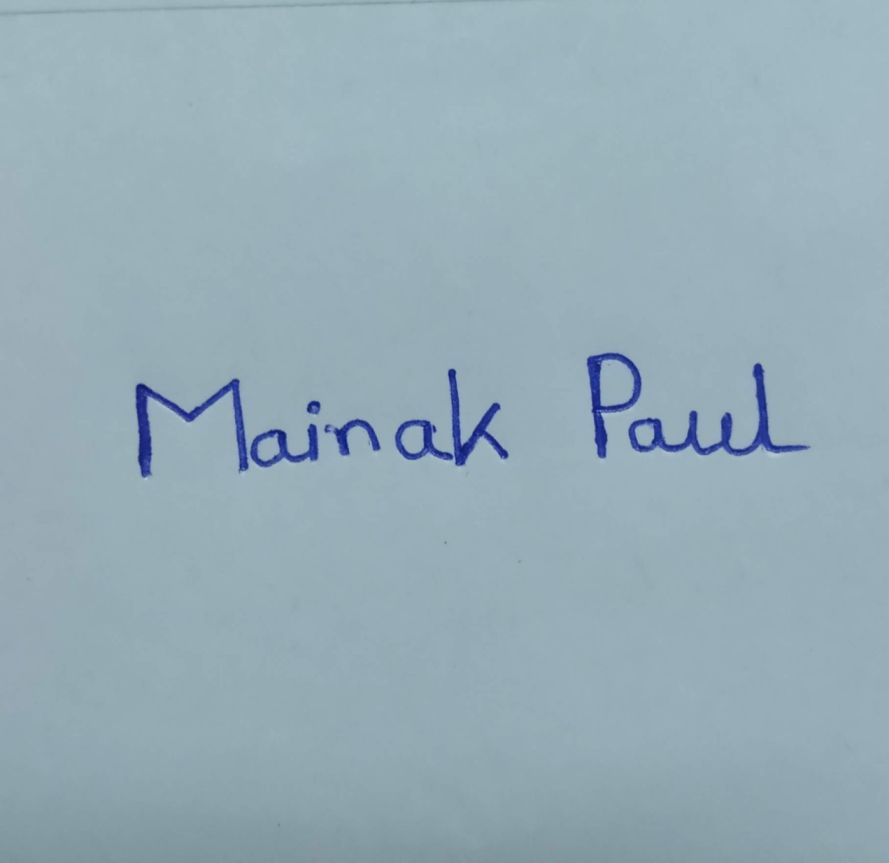 Mainak Paul